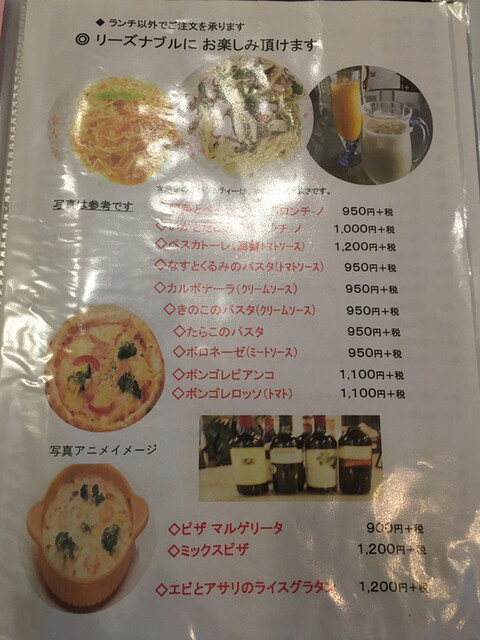 ◆ ランチ以外でご注文を承ります
◎ リーズナブルに お楽しみ頂けます
写真は参考です
950円+税
1,000円+税
◇ペスカトーレ(海鮮トマトソース) 1,200円+税
◇なすとくるみのパスタ(トマトソース) 950円+税
◇カルボナーラ(クリームソース) 950円+税
◇きのこのパスタ(クリームソース) 950円+税
◇たらこのパスタ 950円+税
◇ボロネーゼ(ミートソース) 950円+税
◇ボンゴレビアンコ 1,100円+税
◇ボンゴレロッソ(トマト) 1,100円+税
写真アニメイメージ
◇ピザ マルゲリータ 900円+税
◇ミックスピザ 1,200円+税
◇エビとアサリのライスグラタン 1,200円+税